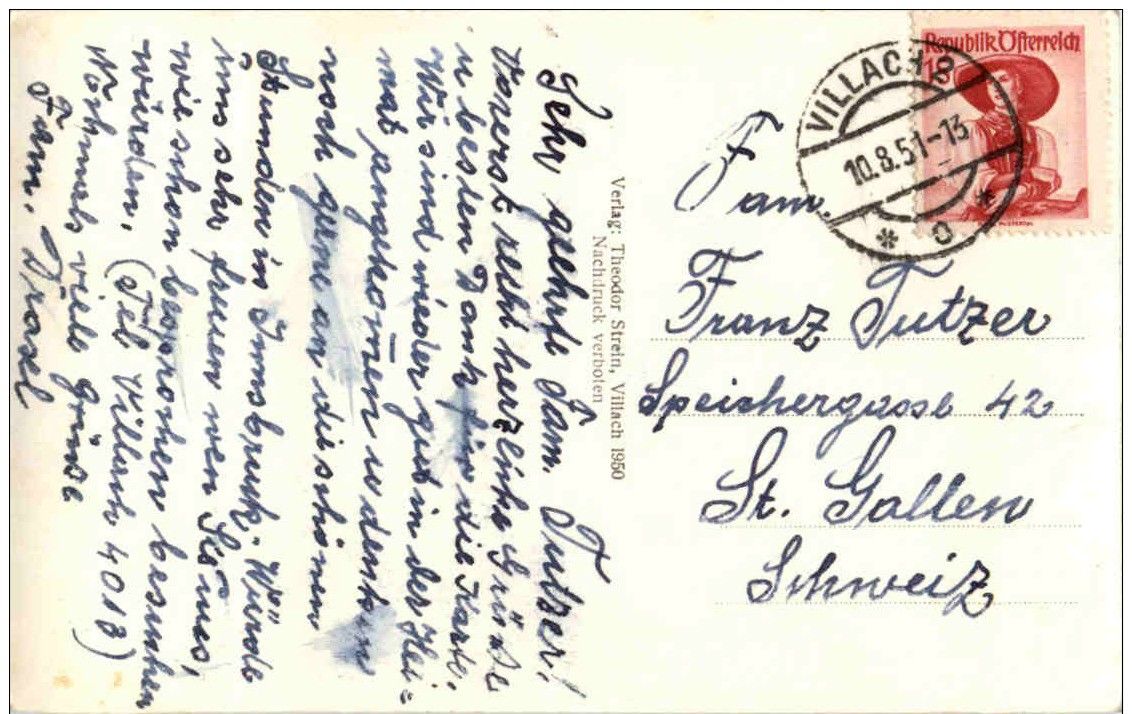 Sehr geehrte Fam. Tutzer!
Vorerst recht herzliche Grüße
u besten Dank für die Karte.
Wir sind wieder gut in der Hei=
mat angekom̄en u denken
noch gern an die schönen
Stunden in Innsbruck. Würde
uns sehr freuen wen Sie uns,
wie schon besprochen besuchen
würden, (Tel Villach 4018)
Nochmals viele Grüsse
Fam. Drasel
Verlag: Theodor Strein, Villach 1950
Nachdruck verboten
Republik Österreich
VILLACH 2
10.8.51-13
Fam.
Franz Tutzer
Speichergasse 42
St. Gallen
Schweiz